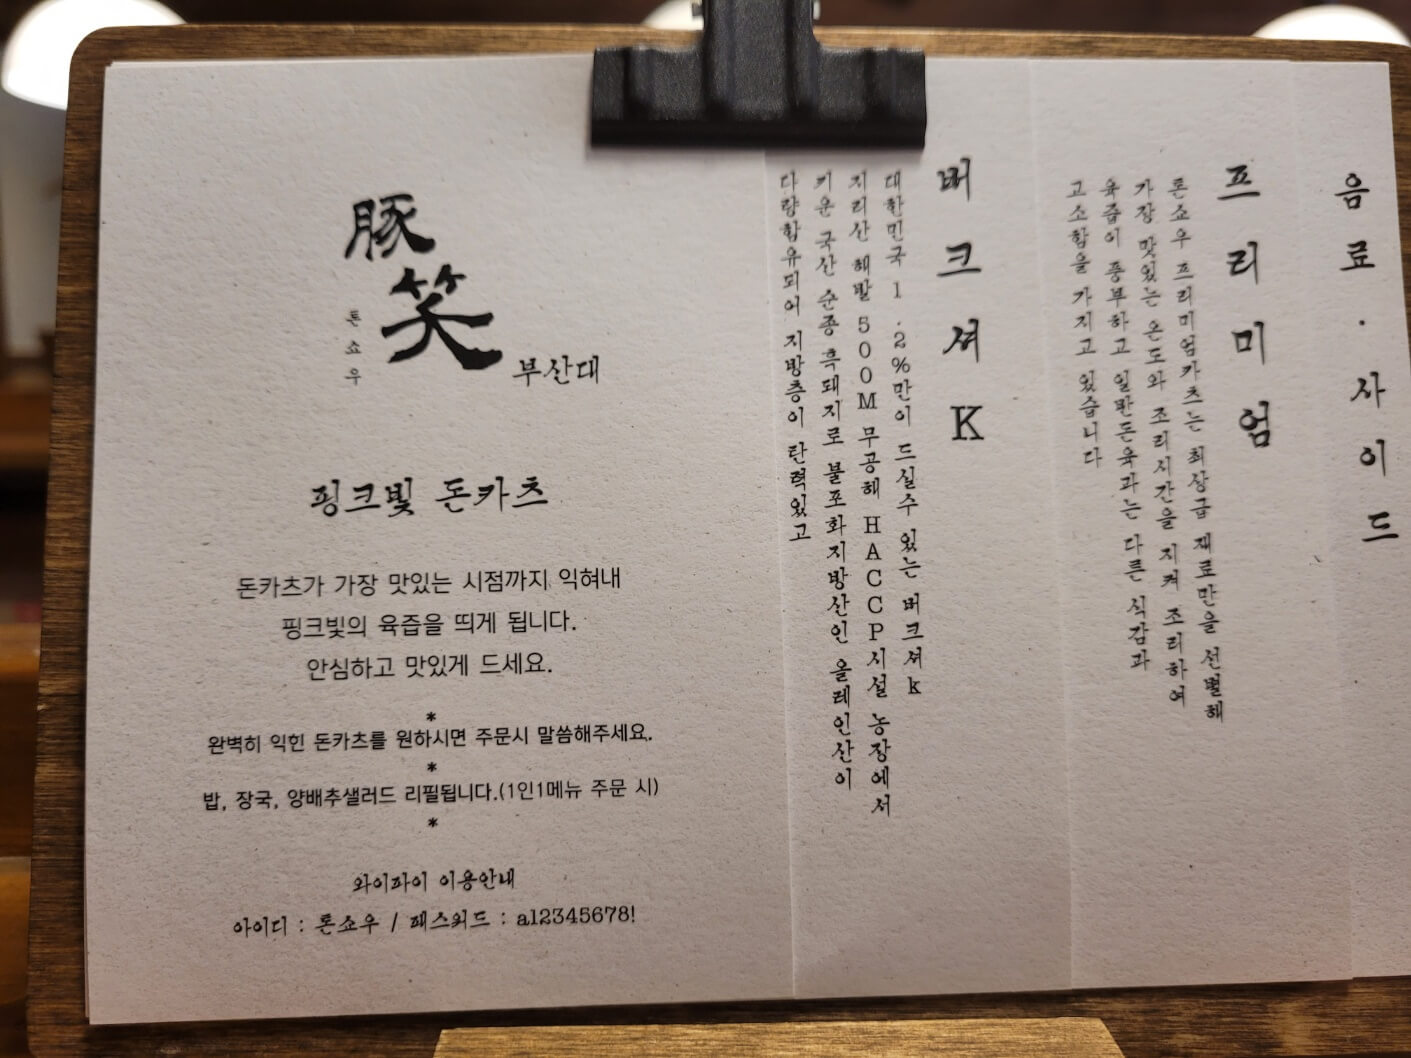 豚
笑
톤쇼우
부산대
핑크빛 돈카츠
돈카츠가 가장 맛있는 시점까지 익혀내
핑크빛의 육즙을 띄게 됩니다.
안심하고 맛있게 드세요.
*
완벽히 익힌 돈카츠를 원하시면 주문시 말씀해주세요.
*
밥, 장국, 양배추샐러드 리필됩니다.(1인1메뉴 주문 시)
*
와이파이 이용안내
아이디 : 톤쇼우 / 패스워드 : a12345678!
버크셔K
대한민국 1.2%만이 드실수 있는 버크셔k
지리산 해발 500M 무공해 HACCP시설 농장에서
키운 국산 순종 흑돼지로 불포화지방산인 올레인산이
다량함유되어 지방층이 탄력있고
프리미엄
톤쇼우 프리미엄카츠는 최상급 재료만을 선별해
가장 맛있는 온도와 조리시간을 지켜 조리하여
육즙이 풍부하고 일반돈육과는 다른 식감과
고소함을 가지고 있습니다
음료·사이드